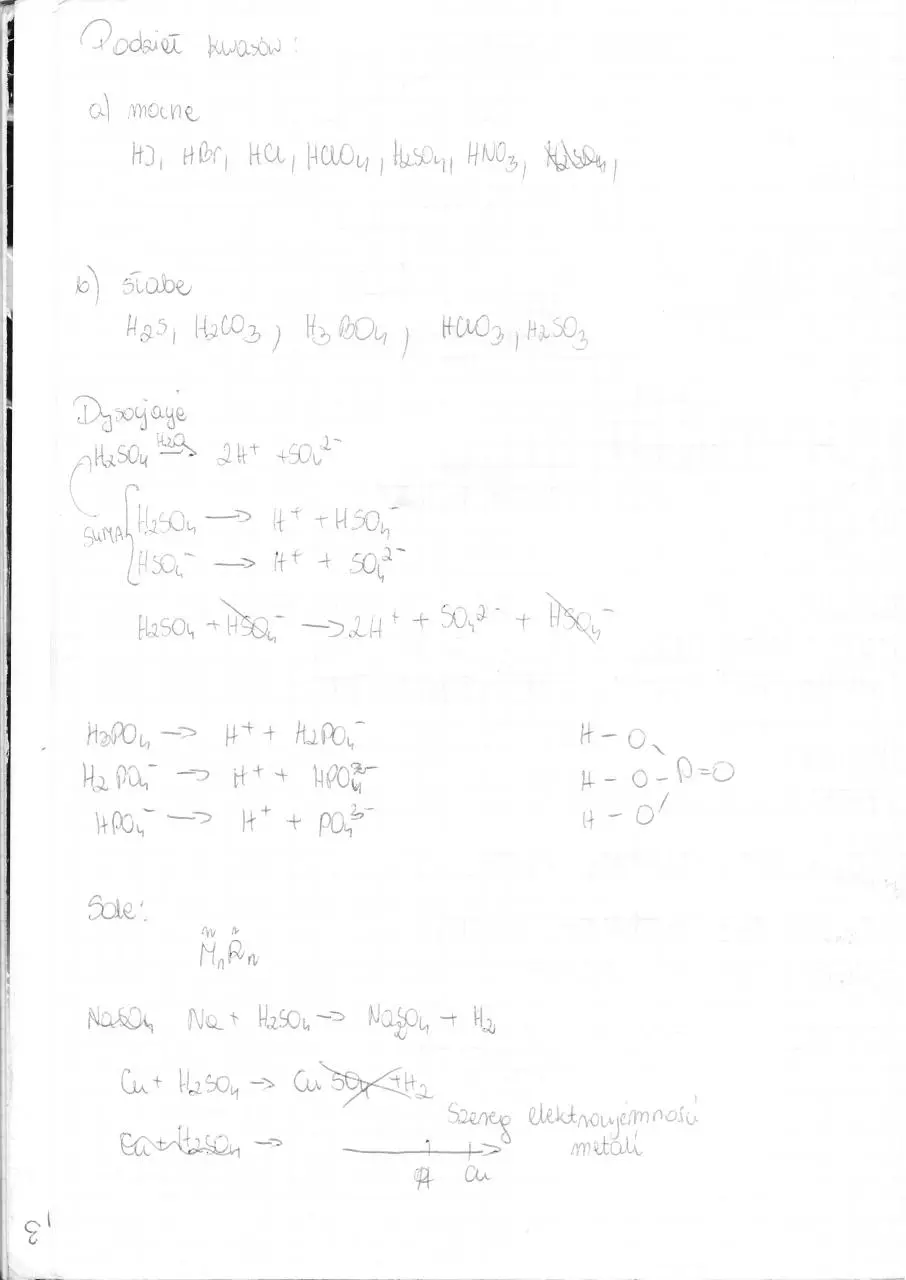 Podział kwasów:
a) mocne
HJ, HBr, HCl, HClO₄, H₂SO₄, HNO₃, H₂SO₄,
b) słabe
H₂S, H₂CO₃, H₃BO₄, HClO₃, H₂SO₃
Dysocjacje
H₂SO₄ H₂O → 2H⁺ + SO₄²⁻
SUMA
H₂SO₄ → H⁺ + HSO₄⁻
HSO₄⁻ → H⁺ + SO₄²⁻
H₂SO₄ + HSO₄⁻ → 2H⁺ + SO₄²⁻ + HSO₄⁻
H₃PO₄ → H⁺ + H₂PO₄⁻
H₂PO₄⁻ → H⁺ + HPO₄²⁻
HPO₄⁻ → H⁺ + PO₄³⁻
H – O
H – O – P = O
H – O
Sole:
m n
MₙRₘ
NaSO₄ Na + H₂SO₄ → Na₂SO₄ + H₂
Cu + H₂SO₄ → Cu SO₄ + H₂
Szereg elektroujemności
metali
Cu + H₂SO₄ →
H Cu
3